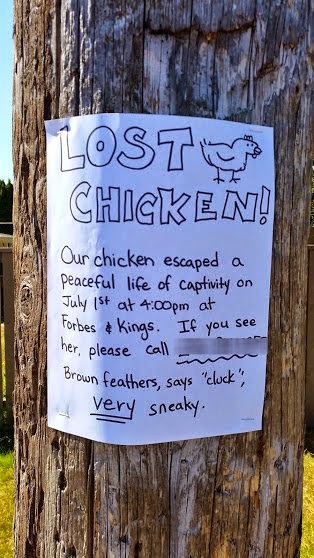 LOST
CHICKEN!
Our chicken escaped a
peaceful life of captivity on
July 1st at 4:00pm at
Forbes & Kings. If you see
her, please call
Brown feathers, says "cluck",
very sneaky.